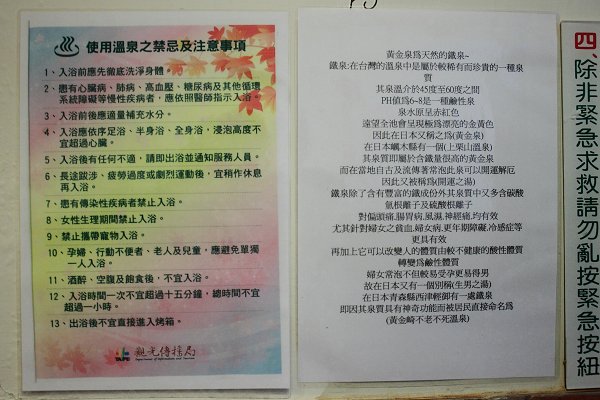 使用溫泉之禁忌及注意事項
1、入浴前應先徹底洗淨身體。
2、患有心臟病、肺病、高血壓、糖尿病及其他循環
系統障礙等慢性疾病者，應依照醫師指示入浴。
3、入浴前後應適量補充水分。
4、入浴應依序足浴、半身浴、全身浴，浸泡高度不
宜超過心臟。
5、入浴後有任何不適，請即出浴並通知服務人員。
6、長途跋涉、疲勞過度或劇烈運動後，宜稍作休息
再入浴。
7、患有傳染性疾病者禁止入浴。
8、女性生理期間禁止入浴。
9、禁止攜帶寵物入浴。
10、孕婦、行動不便者、老人及兒童，應避免單獨
一人入浴。
11、酒醉、空腹及飽食後，不宜入浴。
12、入浴時間一次不宜超過十五分鐘，總時間不宜
超過一小時。
13、出浴後不宜直接進入烤箱。
TAIPEI
觀光傳播局
Department of Information and Tourism
黃金泉為天然的鐵泉~
鐵泉:在台灣的溫泉中是屬於較稀有而珍貴的一種泉
質
其泉溫介於45度至60度之間
PH值為6~8是一種鹼性泉
泉水原呈赤紅色
遠望全池會呈現極為漂亮的金黃色
因此在日本又稱之為(黃金泉)
在日本崎木縣有一個(上栗山溫泉)
其泉質即屬於含鐵量很高的黃金泉
而在當地自古及流傳著常泡此泉可以開運解厄
因此又被稱為(開運之湯)
鐵泉除了含有豐富的鐵成份外其泉質中又多含碳酸
氫根離子及硫酸根離子
對偏頭痛,腸胃病,風濕,神經痛,均有效
尤其針對婦女之貧血,婦女病,更年期障礙,冷感症等
更具有效
再加上它可以改變人的體質由較不健康的酸性體質
轉變為鹼性體質
婦女常泡不但較易受孕更易得男
故在日本又有一個別稱(生男之湯)
在日本青森縣西津輕御有一處鐵泉
即因其泉質具有神奇功能而被居民直接命名為
(黃金崎不老不死溫泉)
四、除非緊急求救請勿亂按緊急按紐